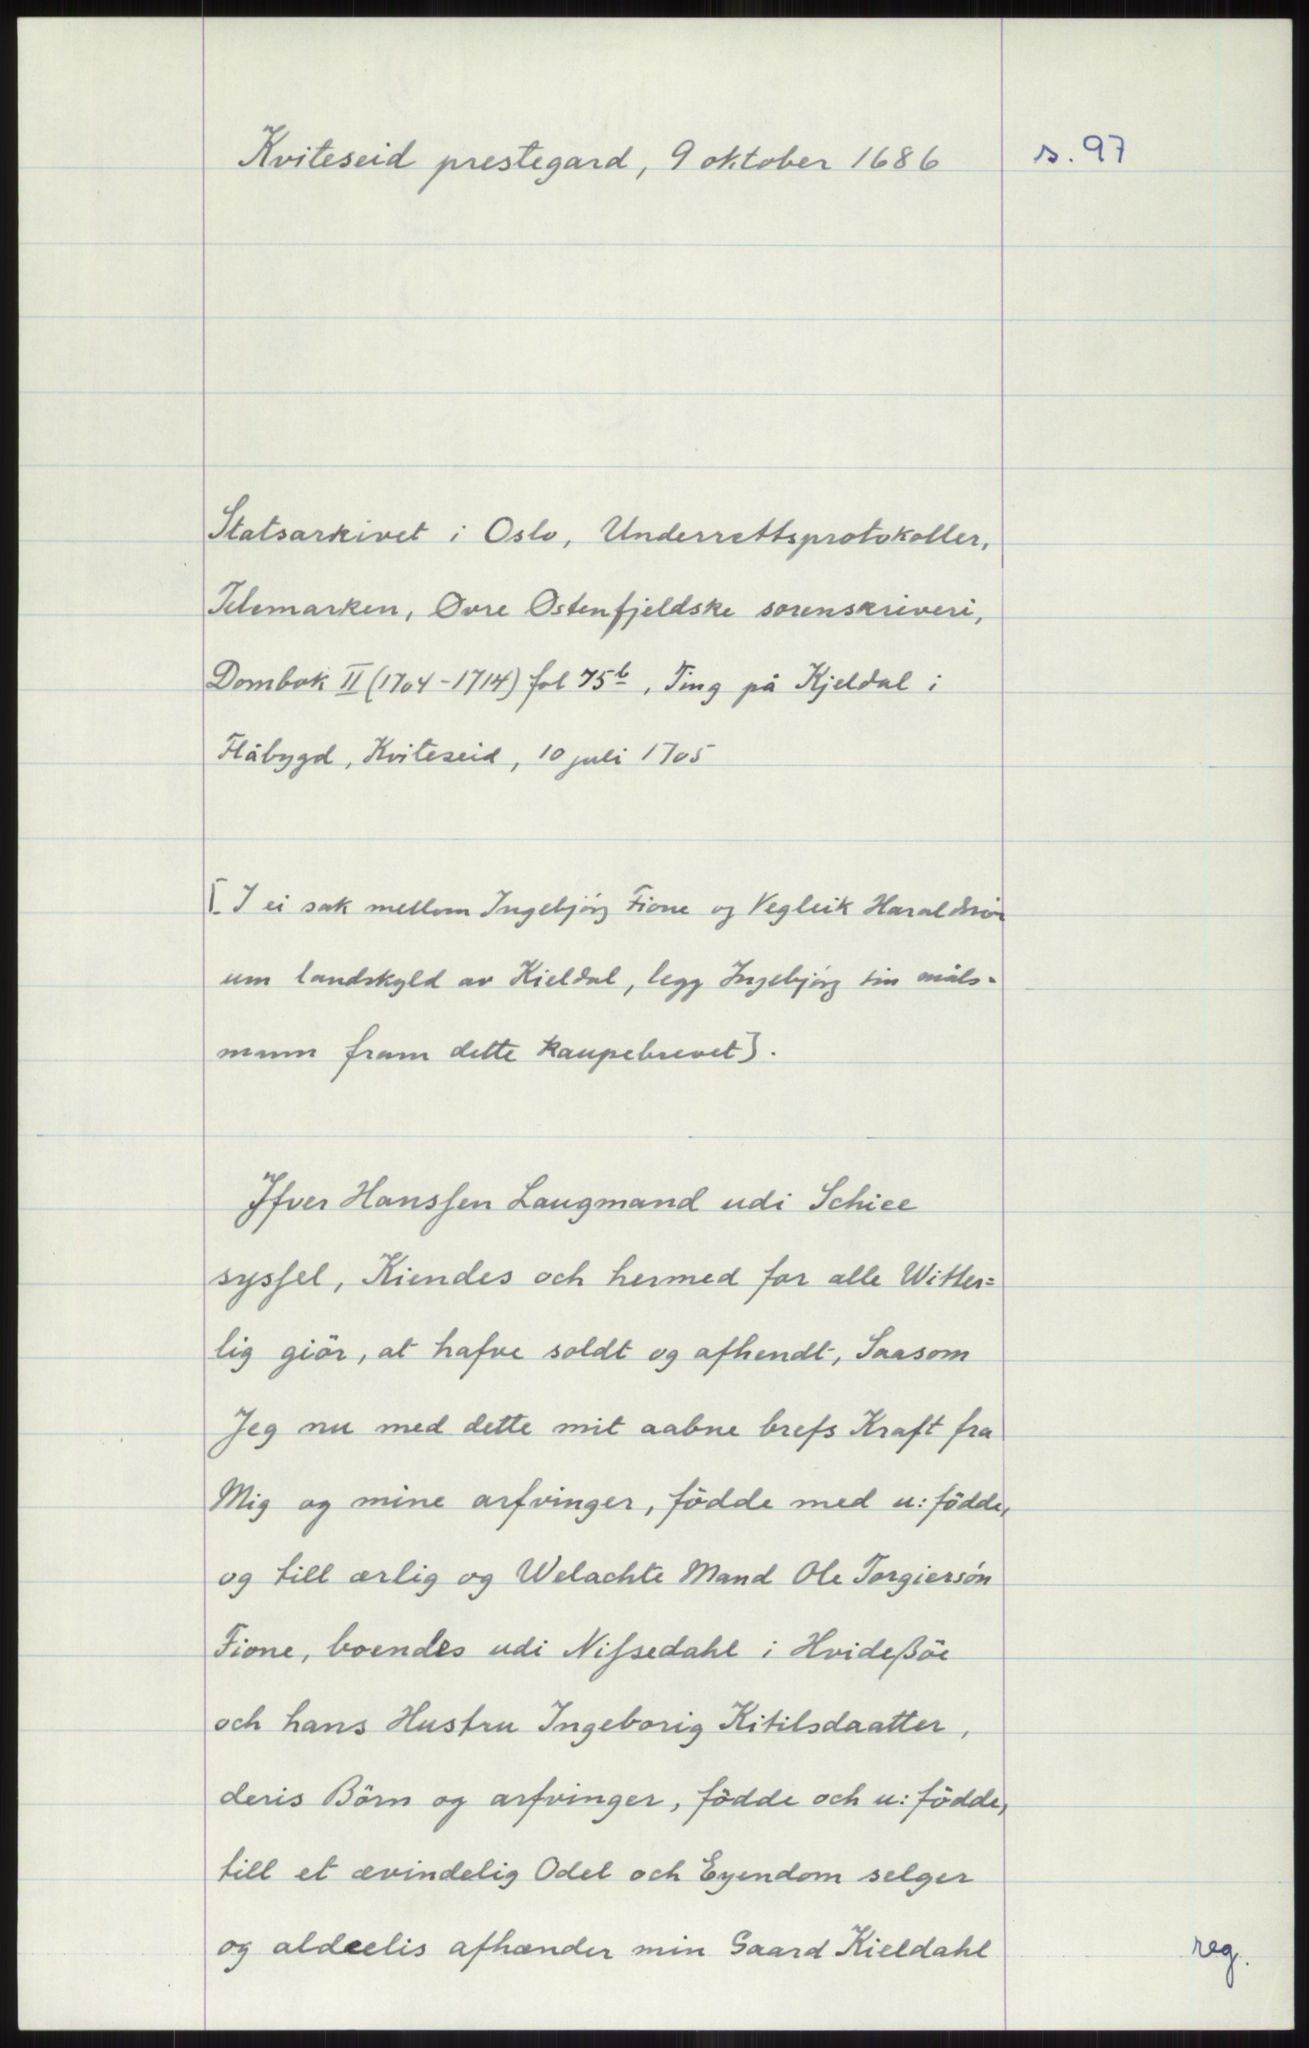 Kviteseid prestegard, 9 oktober 1686
s. 97
Statsarkivet i Oslo, Underrettsprotokoller,
Telemarken, Øvre Østenfjeldske sorenskriveri,
Dombok II (1704-1714) fol 75b, Ting på Kjeldal i
Flåbygd, Kviteseid, 10 juli 1705
[I ei sak mellom Ingebjörg Fione og Vegleik Haraldsön
um landskyld av Kieldal, legg Ingebjörg sin måls-
mann fram dette kaupebrevet].
Ifver Hanssen Laugmand udi Schiee
syssel, Kiendes och hermed for alle Witter=
lig giör, at hafve soldt og afhendt, Saasom
Jeg nu med dette mit aabne brefs Kraft fra
Mig og mine arfvinger, födde med u: födde,
og till ærlig og Welachte Mand Ole Torgiersön
Fione, boendes udi Nissedahl i Hvideßöe
och hans Hustru Ingeborig Kitilsdaatter,
deris Börn og arfvinger, födde och u: födde,
till et ævindelig Odel och Eyendom selger
og aldeelis afhænder min Gaard Kieldahl
reg.